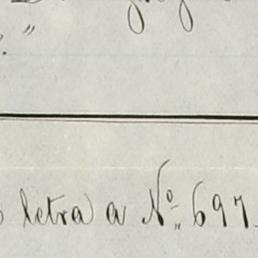 letra a Nº 697.